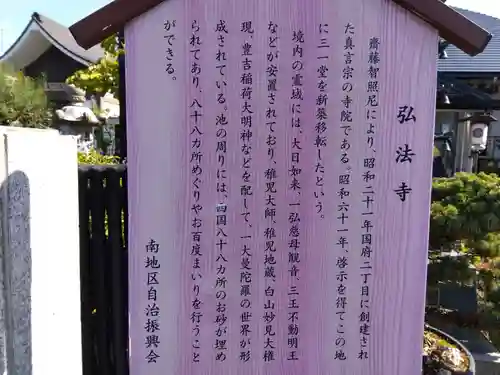 弘法寺
齋藤智照尼により、昭和二十一年国府二丁目に創建され
た真言宗の寺院である。昭和六十一年、啓示を得てこの地
に三一堂を新築移転したという。
境内の霊域には、大日如来、一弘慈母観音、三王不動明王
などが安置されており、稚児大師、稚児地蔵、白山妙見大権
現、豊吉稲荷大明神などを配して、一大曼陀羅の世界が形
成されている。池の周りには、四国八十八カ所のお砂が埋め
られてあり、八十八カ所めぐりやお百度まいりを行うこと
ができる。
南地区自治振興会